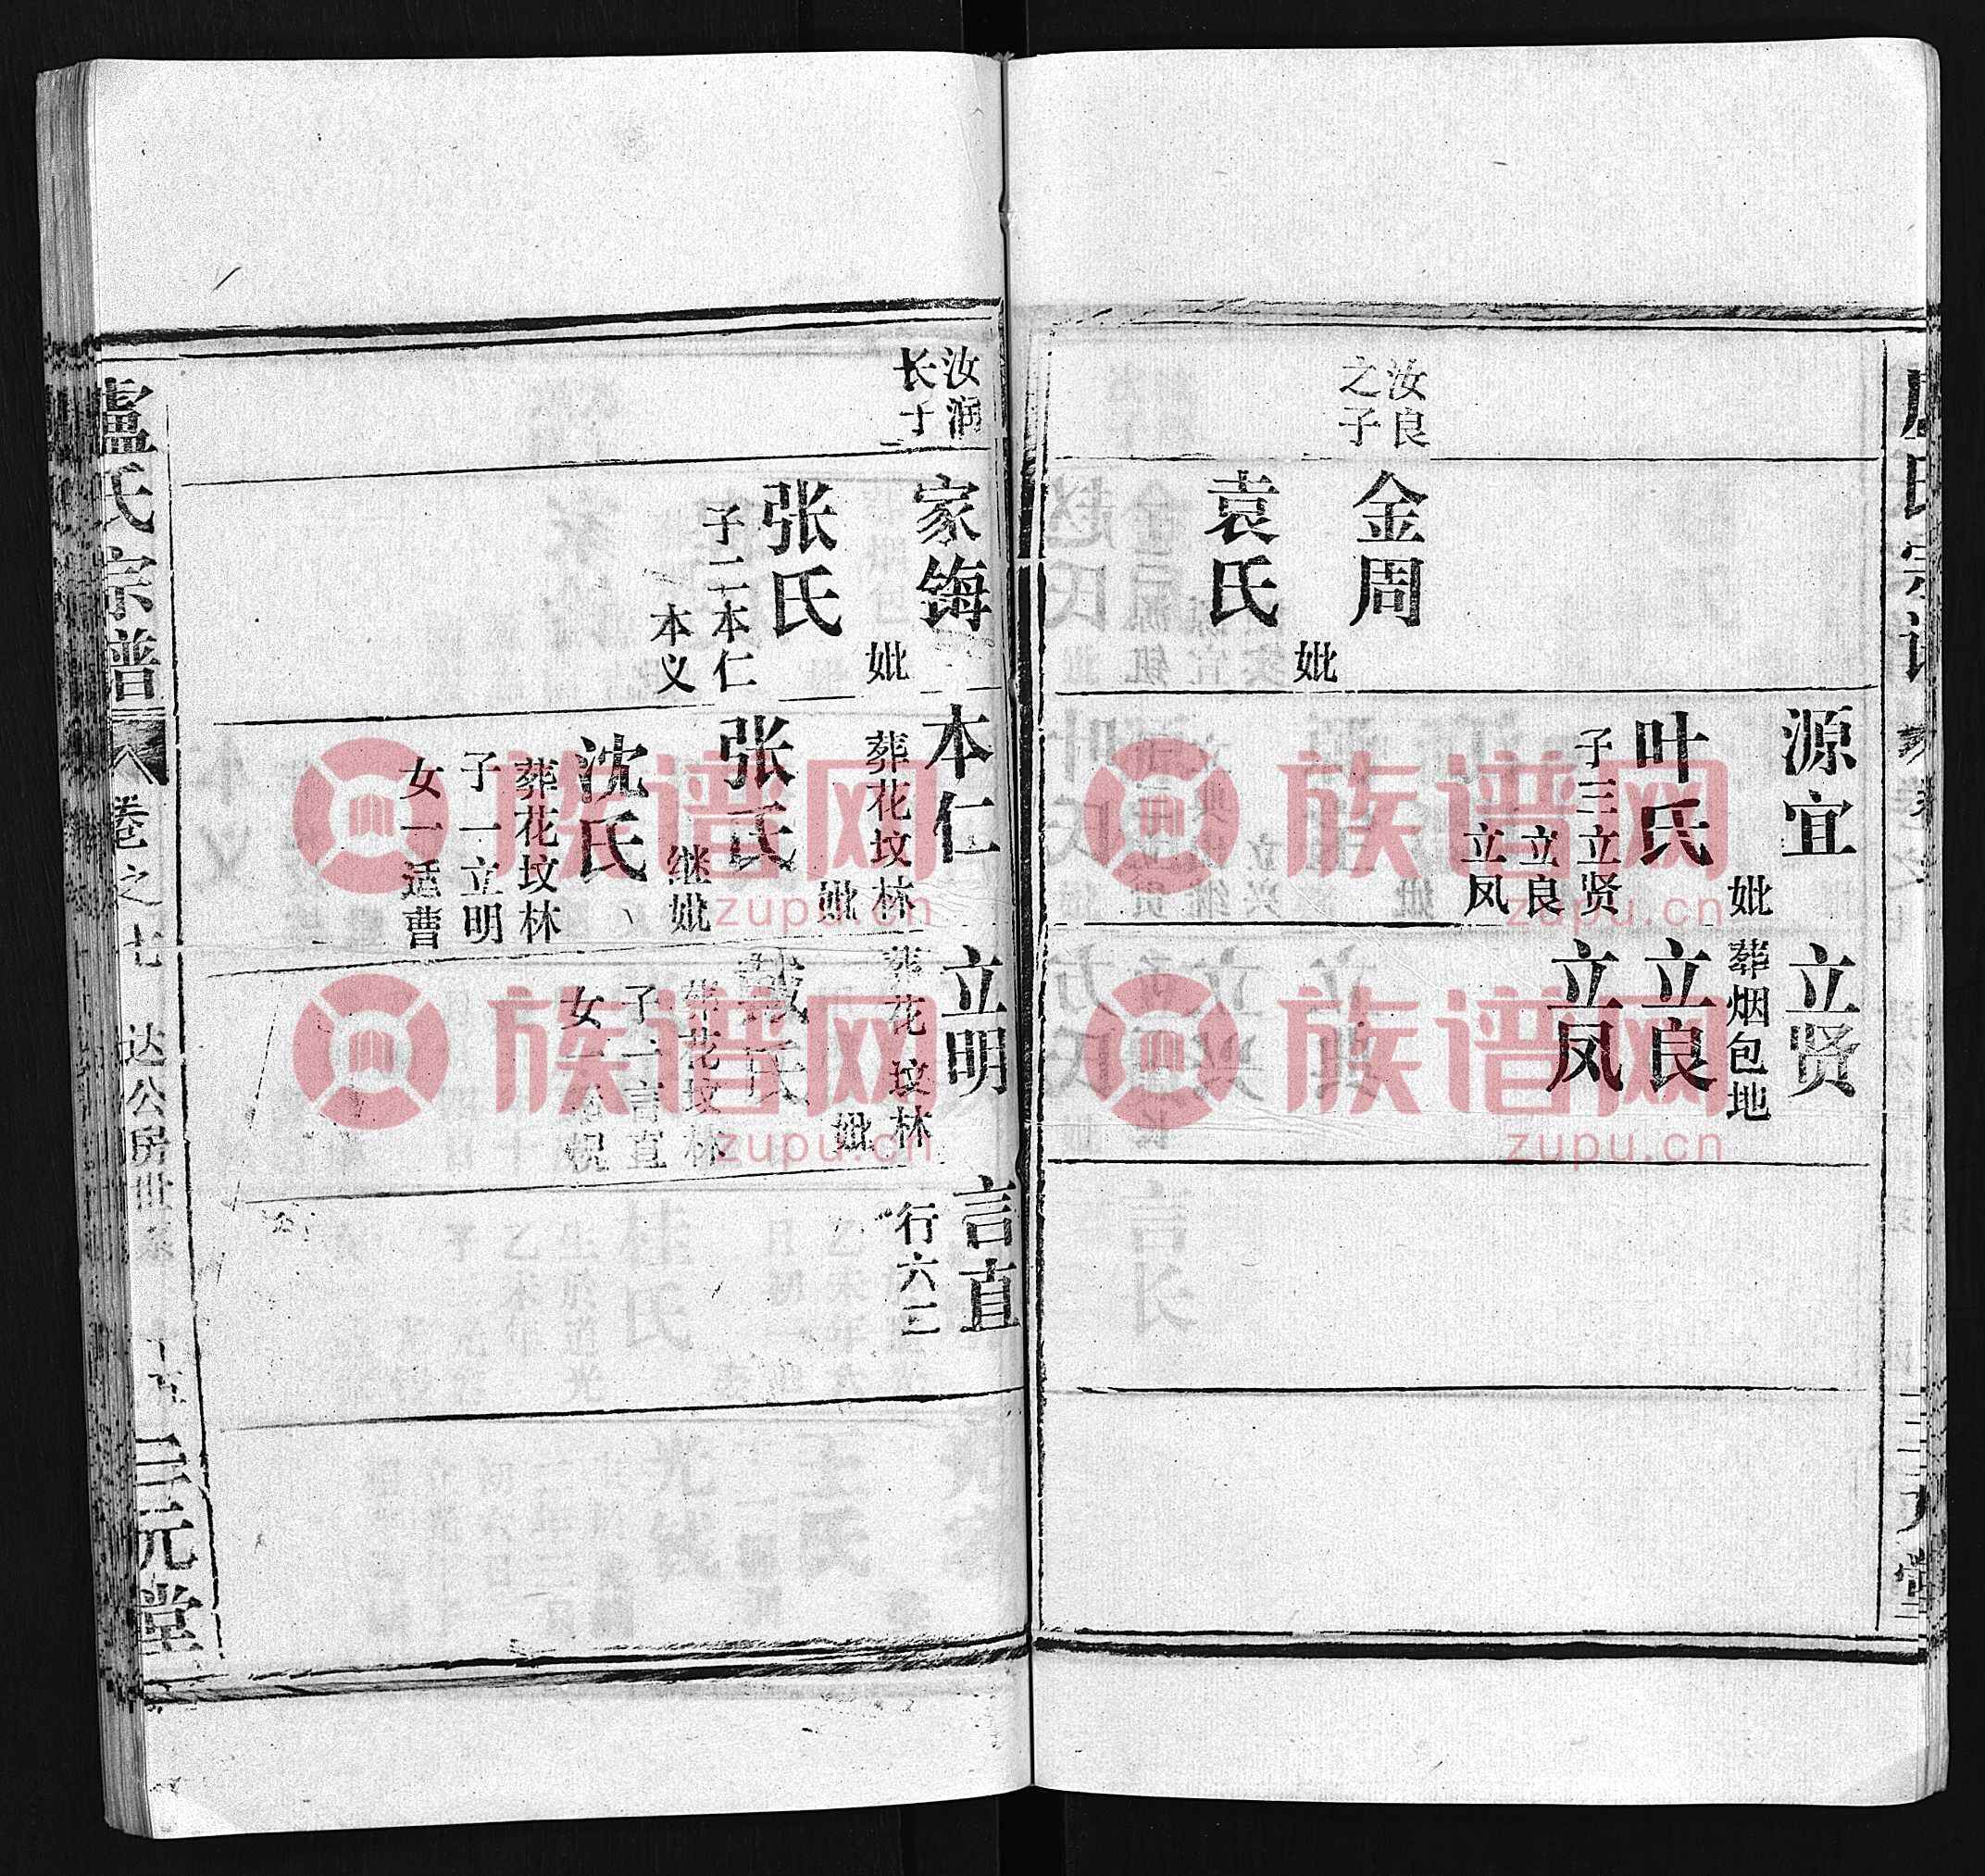 汝良
之子
金周
妣
袁氏
源宜
妣
叶氏
子三立贤
立良
立凤
立贤
葬烟包地
立良
立凤
汝润
长子
家䥺
妣
张氏
子二本仁
本义
本仁
葬花坟林
妣
张氏
继妣
沈氏
葬花坟林
子一立明
女一适曹
立明
葬花坟林
妣
戴氏
葬花坟林
子一言直
女一适祝
言直
行六三
盧氏宗譜
卷之七
达公房世系
三元堂
族谱网
zupu.cn
族谱网
zupu.cn
族谱网
zupu.cn
族谱网
zupu.cn